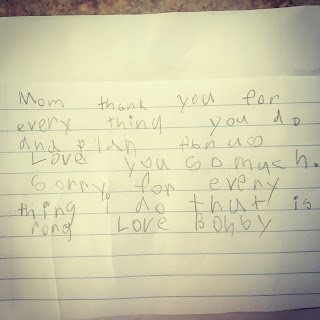 Mom thank you for
every thing you do
and plan for us
Love you so much.
Sorry for every
thing I do that is
rong Love Bobby